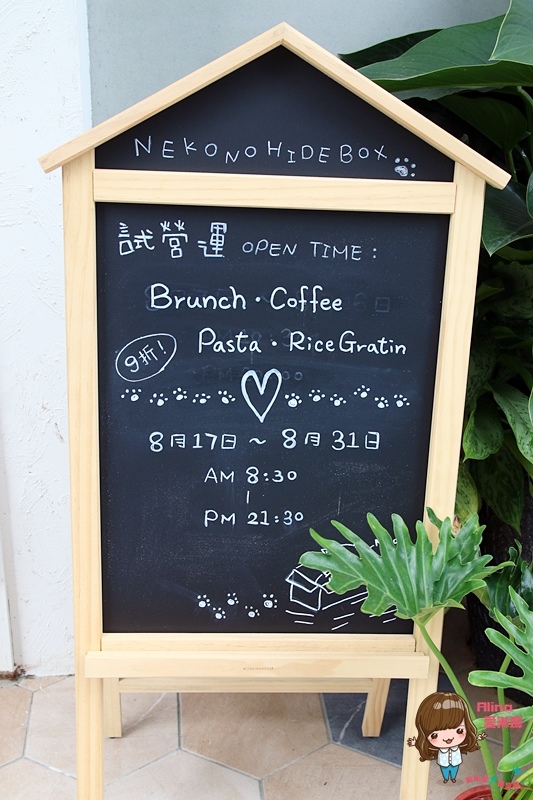 NEKONOHIDEBOX
試營運 OPEN TIME :
Brunch · Coffee
9折!
Pasta · Rice Gratin
8月17日 ~ 8月31日
AM 8:30
|
PM 21:30
Alina